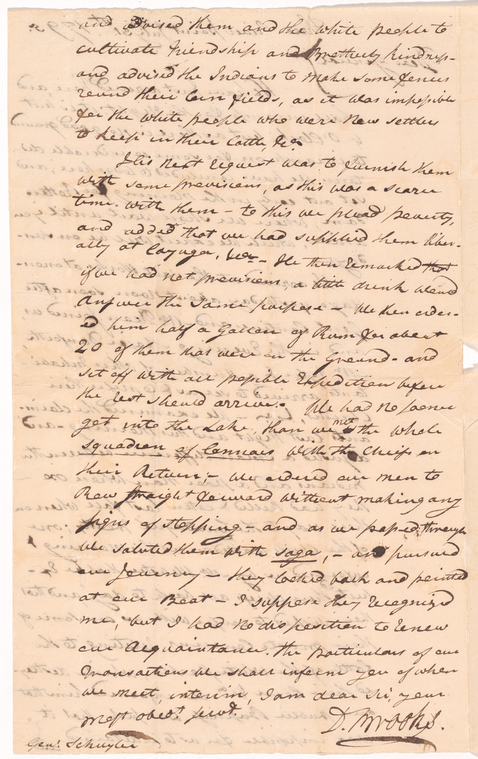 and advised them and the white people to
cultivate Friendship and Brotherly kindness—
and advised the Indians to make some fences
round their Corn fields, as it was impossible
for the white people who were New settlers
to keep in their Cattle &ca
His next request was to furnish them
with some provisions, as this was a scarce
time with them – to this we plead poverty,
and added that we had supplied them liber-
ally at Cayuga, &ca – He then remarked that
if we had not provisions a little drink would
Answer the same purpose – We then order-
ed him half a Gallon of Rum for about
20 of them that were on the Ground – and
set off with all possible Expedition before
the rest should arrive. We had no sooner
got into the Lake, than we met the whole
Squadron of Cannoes with the Chiefs on
their Return; – We ordered our men to
Row straight forward without making any
signs of stopping – and as we passed through
We saluted them with Sago, – and pursued
our Journey – they looked back and pointed
at our Boat – I suppose they recognized
me, but I had no disposition to renew
our Acquaintance. the particulars of our
transactions we shall inform you of when
we meet, interim, I am dear Sir, your
most obedt. servt.
D. Brooks.
Genl. Schuyler